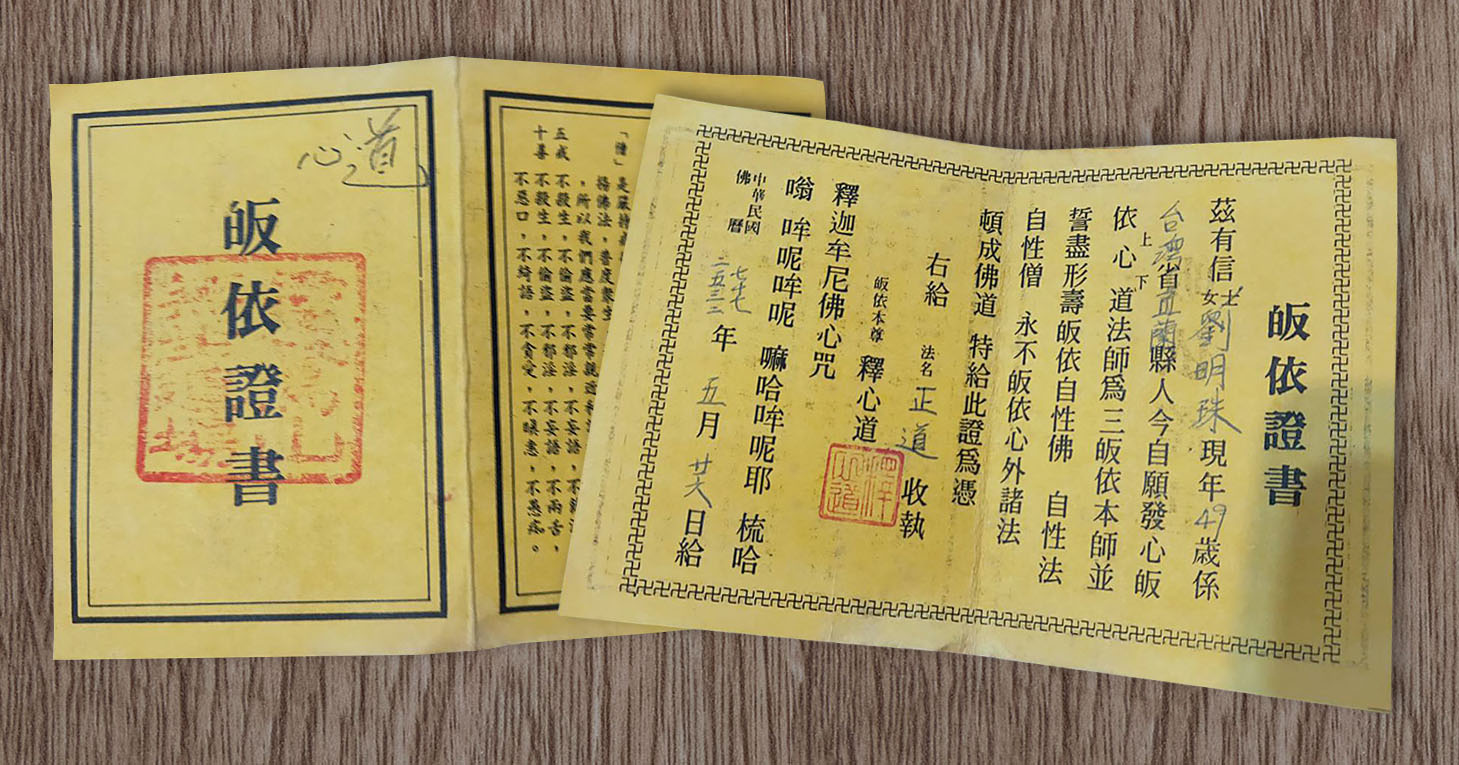 心道
皈依證書
「僧」是嚴持
揚佛法，普度眾生
，所以我們應當要常常親近
五戒 不殺生，不偷盜，不邪淫，不妄語，不
十善 不殺生，不偷盜，不邪淫，不妄語，不兩舌，
不惡口，不綺語，不貪愛，不瞋恚，不愚痴。
皈依證書
茲有信士女劉明珠現年49歲係
台灣省宜蘭縣人今自願發心皈
依上心下道法師為三皈依本師並
誓盡形壽皈依自性佛 自性法
自性僧 永不皈依心外諸法
頓成佛道 特給此證為憑
右給 法名 正道 收執
皈依本尊 釋心道
釋迦牟尼佛心咒
嗡 哞呢哞呢 嘛哈哞呢耶 梳哈
中華民國 七十七
佛曆 二五三二 年 五月 廿六 日給